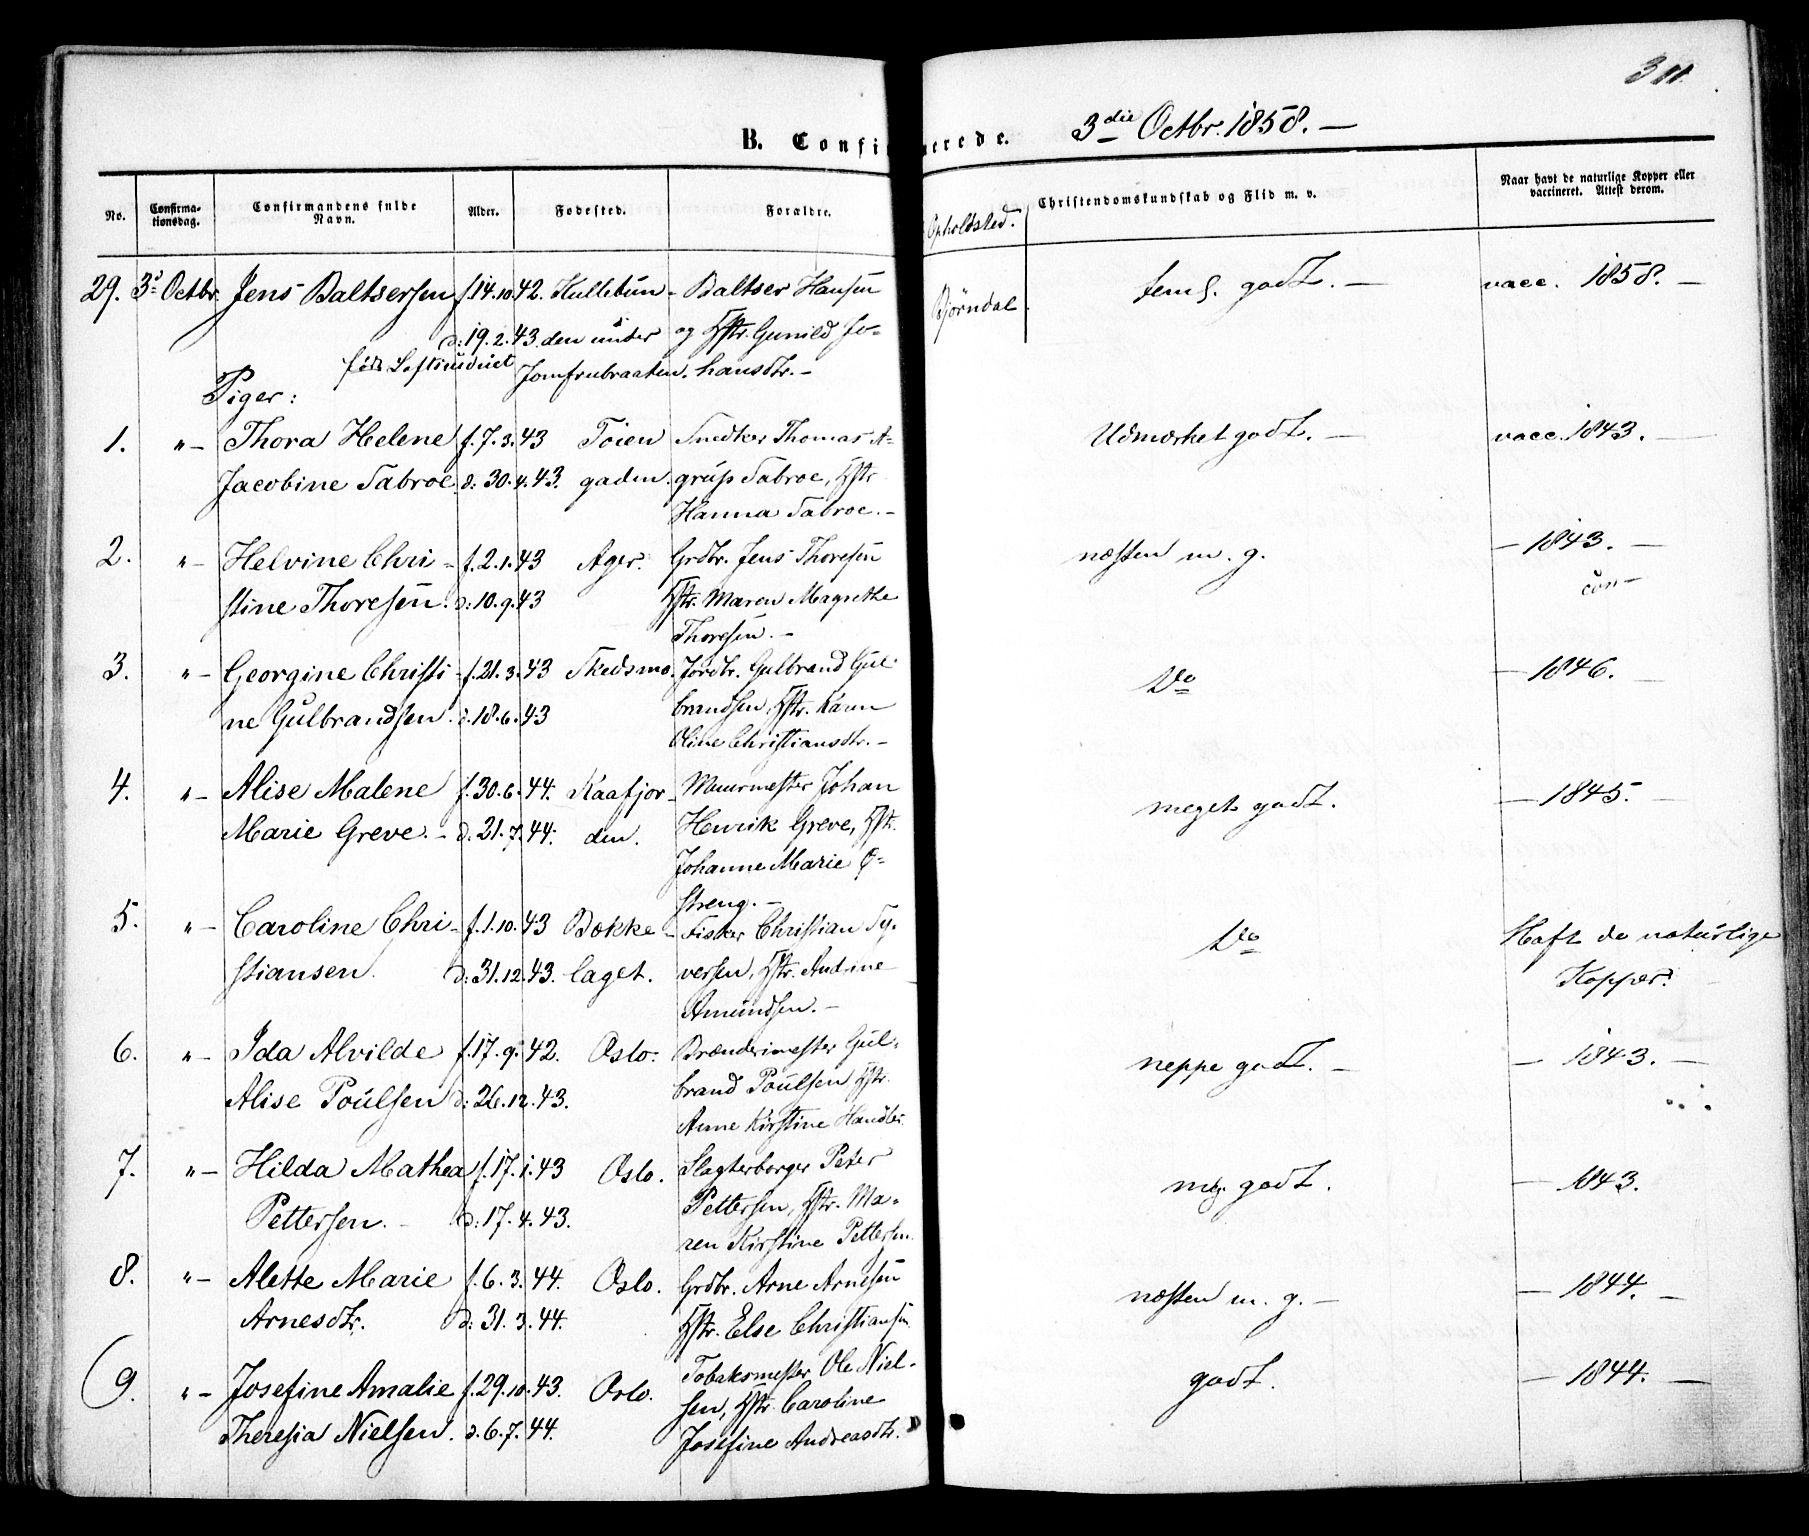 311.
B. Confirmerede. 3die Octbr. 1858. —
No. Confirma-tionsdag. Confirmandens fulde Navn. Alder. Fødested. Forældre. Opholdsted. Christendomskundskab og Flid m. v. Naar havt de naturlige Kopper eller vaccineret. Attest derom.
29. 3d Octbr. Jens Baltsersen f. 14.10.42. Hullebun- Baltser Hansen Bjørndal. temS. godt. — vacc. 1858. —
d: 19.2.43. den under og Hstr. Gunild Jo-
født Jomfrubraaten. hansdtr. —
Piger:
1. "— Thora Helene f. 7.3.43 Tøien Snedker Thomas A- Udmærket godt. — vacc. 1843. —
Jacobine Tabroe. d: 30.4.43. gaden. grup Tabroe, Hstr
Hanna Tabroe. —
2. "— Helvine Chri- f. 2.1.43 Ager. Grdbr. Jens Thoresen næsten m. g. — 1843. —
stine Thoresen. d: 10.9.43 Hstr. Maren Magrethe
Thoresen. —
3. "— Georgine Christi- f. 21.3.43 Skedsmo. Jordbr. Gulbrand Gul- Do — 1846. —
ne Gulbrandsen. d. 18.6.43 brandsen, Hstr. Karen
Oline Christiansdtr. —
4. "— Alise Malene f. 30.6.44. Kaafjor- Muurmester Johan meget godt. — 1845. —
Marie Greve. — d. 21.7.44. den. Henrik Greve, Hstr.
Johanne Marie Ø-
streng. —
5. "— Caroline Chri- f. 1.10.43 Bække- Fisker Christian Sy- Do Haft de naturlige
stiansen. d: 31.12.43. laget. versen, Hstr. Andrine Kopper.
Amundsen. —
6. "— Ida Alvilde f. 17.9.42. Oslo. Brænderimester Gul- neppe godt. — — 1843. —
Alise Poulsen d: 26.12.43. brand Poulsen Hstr.
Anne Kirstine
7. "— Hilda Mathea f. 17.1.43 Oslo. Slagterborger Peter mg. godt. — 1843.
Pettersen. — d: 17.4.43. Pettersen, Hstr. Ma-
ren Kirstine Pettersen
8. "— Alette Marie f. 6.3.44. Oslo. Grdbr. Arne Arnesen næsten m. g. — — 1844. —
Arnesdtr. d: 31.3.44. Hstr. Else Christiansen
9. "— Josefine Amalie f. 29.10.43. Oslo. Tobaksmester Ole Niel- godt. — 1844. —
Theresia Nielsen. d. 6.7.44. sen, Hstr Caroline
Josefine Andreasdtr.